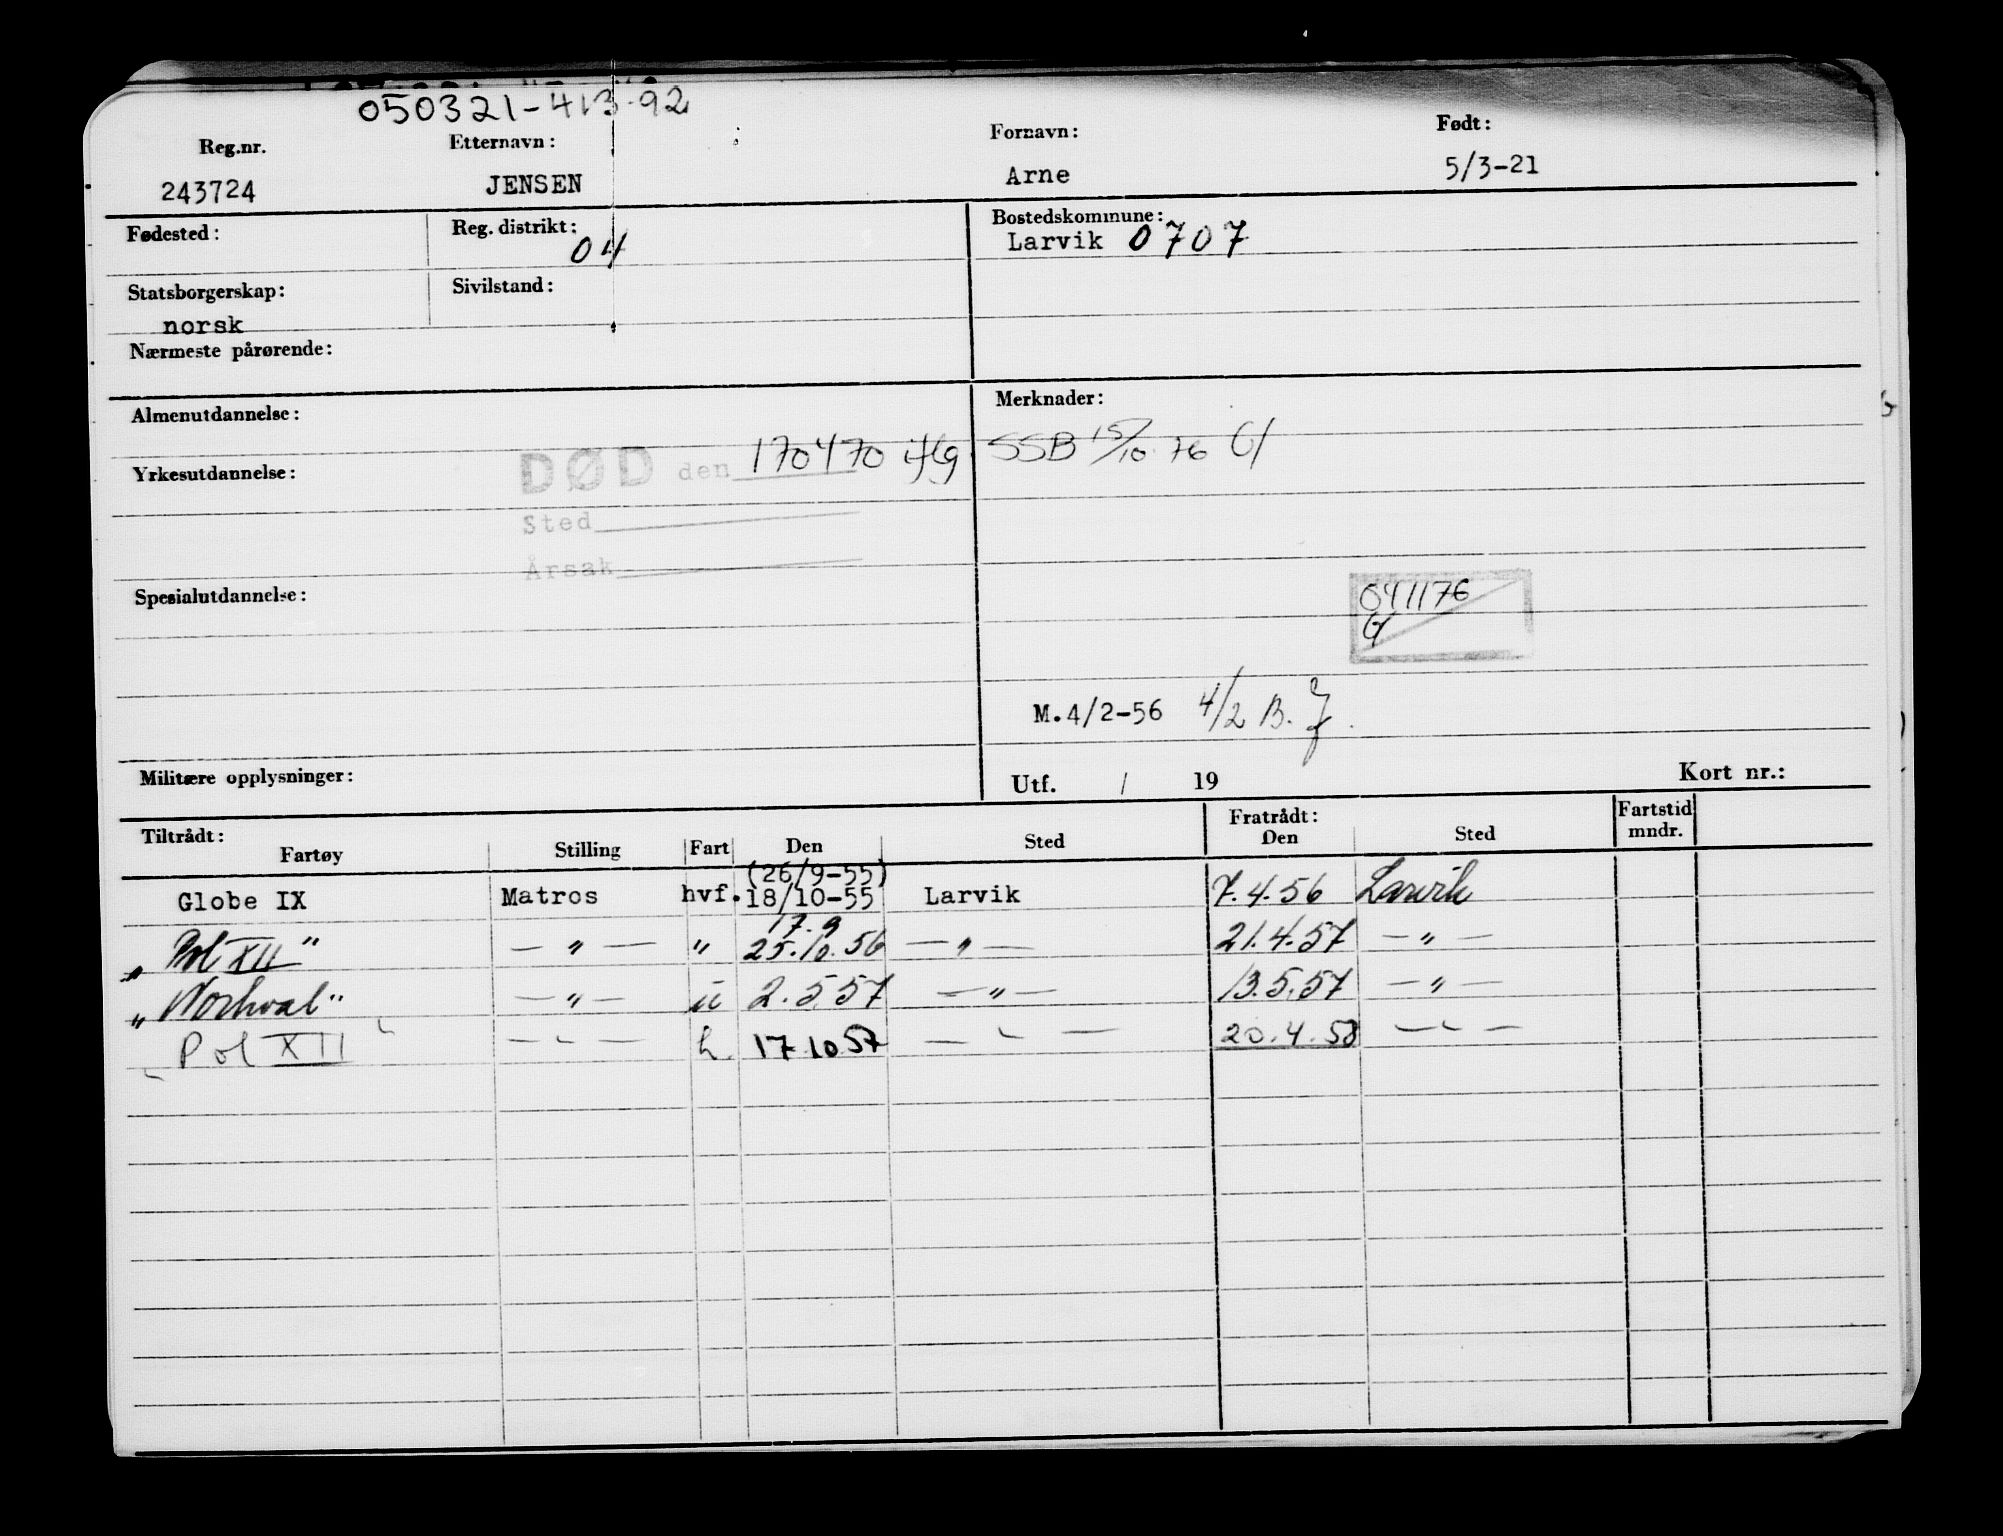 050321-413-92
Reg.nr. Etternavn: Fornavn: Født:
243724 JENSEN Arne 5/3-21
Fødested: Reg. distrikt: 04 Bostedskommune:
Larvik 0707
Statsborgerskap: Sivilstand:
norsk
Nærmeste pårørende:
Almenutdannelse: Merknader:
Yrkesutdannelse: DØD den 170470 iflg SSB 15/10 76 G
Sted
Årsak
Spesialutdannelse: 041176
G
M.4/2-56 4/2 B. J.
Militære opplysninger: Utf. / 19 Kort nr.:
Tiltrådt: Fratrådt: Fartstid
Fartøy Stilling Fart Den Sted Den Sted mndr.
(26/9-55)
Globe IX Matros hvf. 18/10-55 Larvik 7.4.56 Larvik
17.9
„ Pol XII " — " — " 25.10.56 — " — 21.4.57 — " —
„ Norhval " — " — u 2.5.57 — " — 13.5.57 — " —
„ Pol XII " — " — h. 17.10.57 — " — 20.4.58 — " —